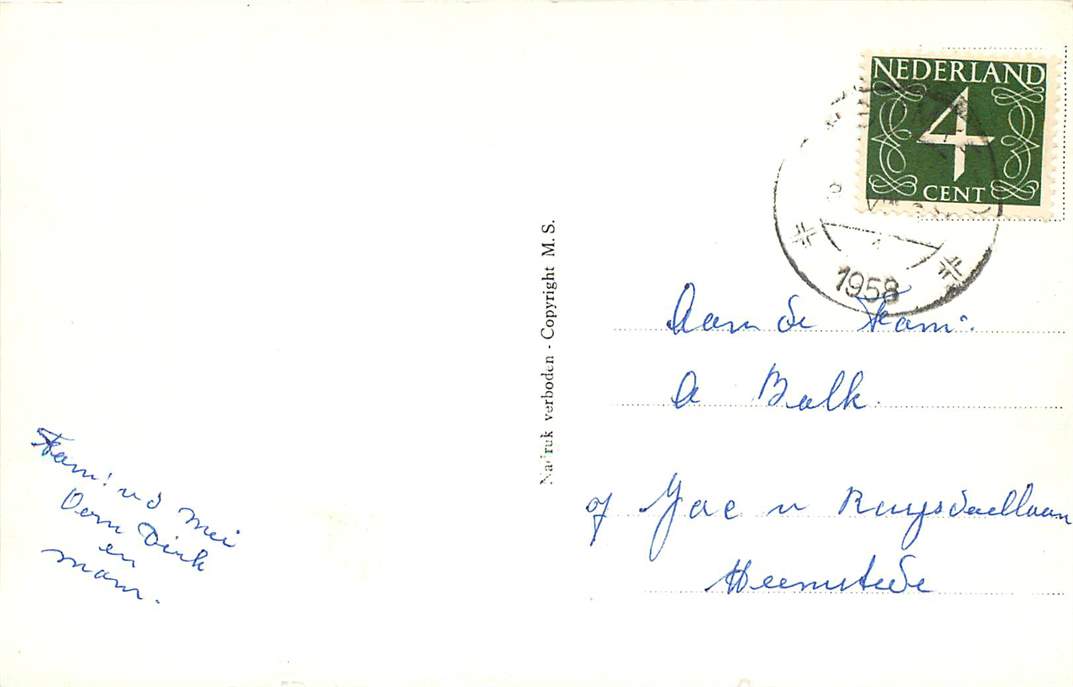 NEDERLAND
4
CENT
1958
Nadruk verboden - Copyright M. S.
Aan de Fam.
A Balk.
Jac v Ruysdaellaan
Heemstede
Fam! v d Mei
Oom Dirk
en
mam.